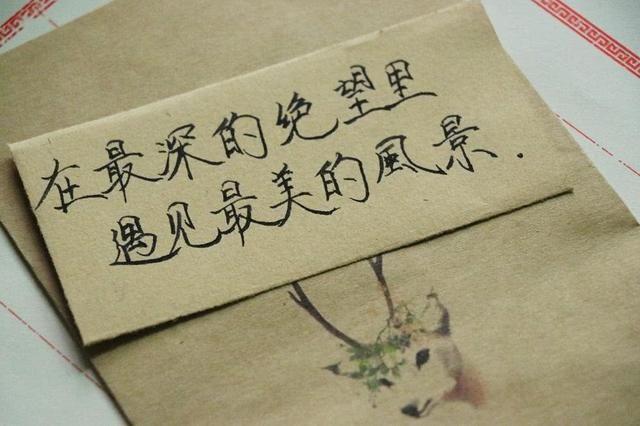 在最深的绝望里
遇见最美的風景.